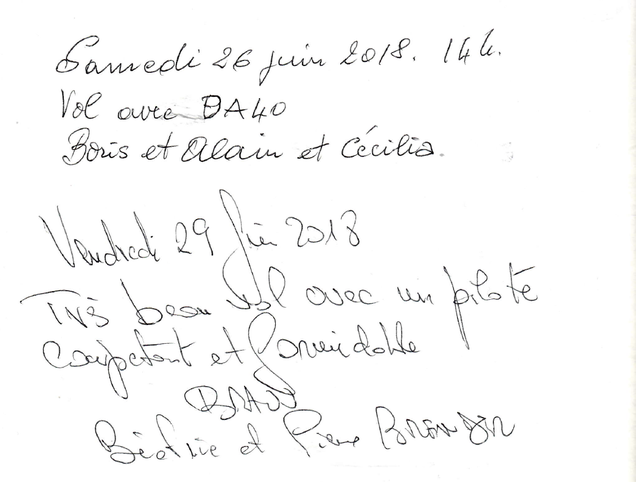 Samedi 26 juin 2018. 14h.
Vol avec DA40
Boris et Alain et Cécilia.
Vendredi 29 Juin 2018
Très beau vol avec un pilote
compétent et formidable
BRAVO
Béatrice et Pierre